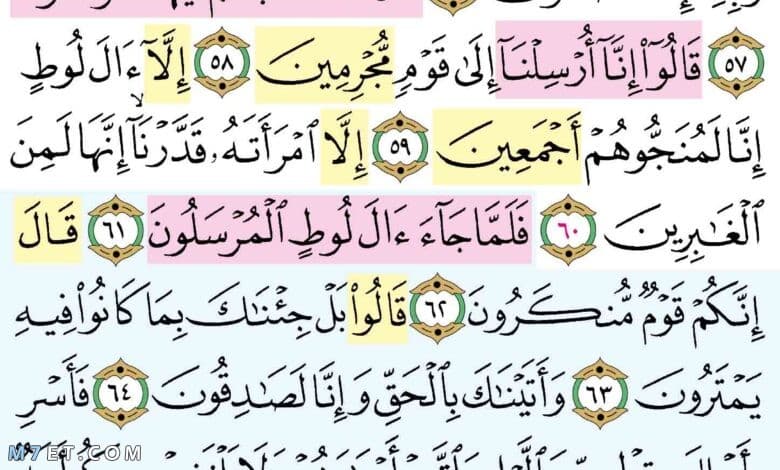 ٥٧ قَالُوٓا۟ إِنَّآ أُرْسِلْنَآ إِلَىٰ قَوْمٍ مُّجْرِمِينَ ٥٨ إِلَّآ ءَالَ لُوطٍ
إِنَّا لَمُنَجُّوهُمْ أَجْمَعِينَ ٥٩ إِلَّا ٱمْرَأَتَهُۥ قَدَّرْنَآ ۙ إِنَّهَا لَمِنَ
ٱلْغَٰبِرِينَ ٦٠ فَلَمَّا جَآءَ ءَالَ لُوطٍ ٱلْمُرْسَلُونَ ٦١ قَالَ
إِنَّكُمْ قَوْمٌ مُّنكَرُونَ ٦٢ قَالُوا۟ بَلْ جِئْنَٰكَ بِمَا كَانُوا۟ فِيهِ
يَمْتَرُونَ ٦٣ وَأَتَيْنَٰكَ بِٱلْحَقِّ وَإِنَّا لَصَٰدِقُونَ ٦٤ فَأَسْرِ
M7ET.COM